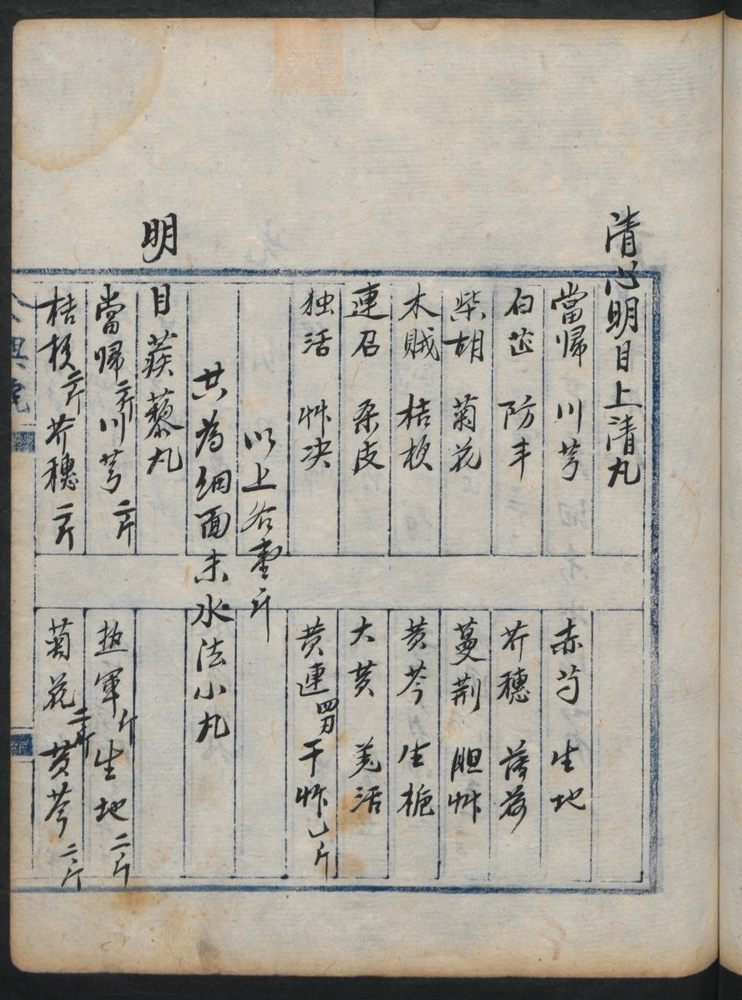 清心明目上清丸
當歸 川芎 赤芍 生地
白芷 防丰 芥穗 薄荷
柴胡 菊花 蔓荆 胆艸
木賊 桔梗 黄芩 生栀
連召 桑皮 大黄 羌活
独活 艸决 黄連 四刃 干艸乚斤
以上各壹斤
共為細面末水法小丸
明目蒺藜丸
當歸二斤 川芎二斤 軍斤 生地二斤
桔梗二斤 芥穗二斤 菊花二斤 黄芩二斤